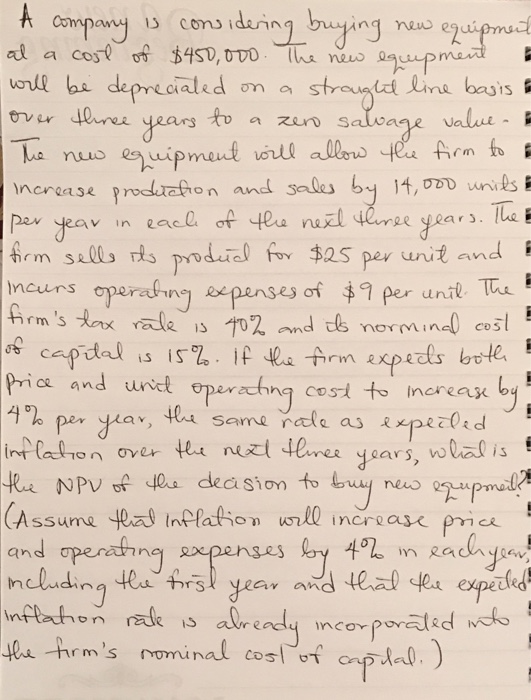 A company is considering buying new equipment
at a cost of $450,000. The new equipment
will be depreciated on a straight line basis
over three years to a zero salvage value.
The new equipment will allow the firm to
increase production and sales by 14,000 units
per year in each of the next three years. The
firm sells its product for $25 per unit and
incurs operating expenses of $9 per unit. The
firm's tax rate is 40% and its norminal cost
of capital is 15%. If the firm expects both
price and unit operating cost to increase by
4% per year, the same rate as expected
inflation over the next three years, what is
the NPV of the decision to buy new equipment?
(Assume that inflation will increase price
and operating expenses by 4% in each year,
including the first year and that the expected
inflation rate is already incorporated into
the firm's nominal cost of capital.)